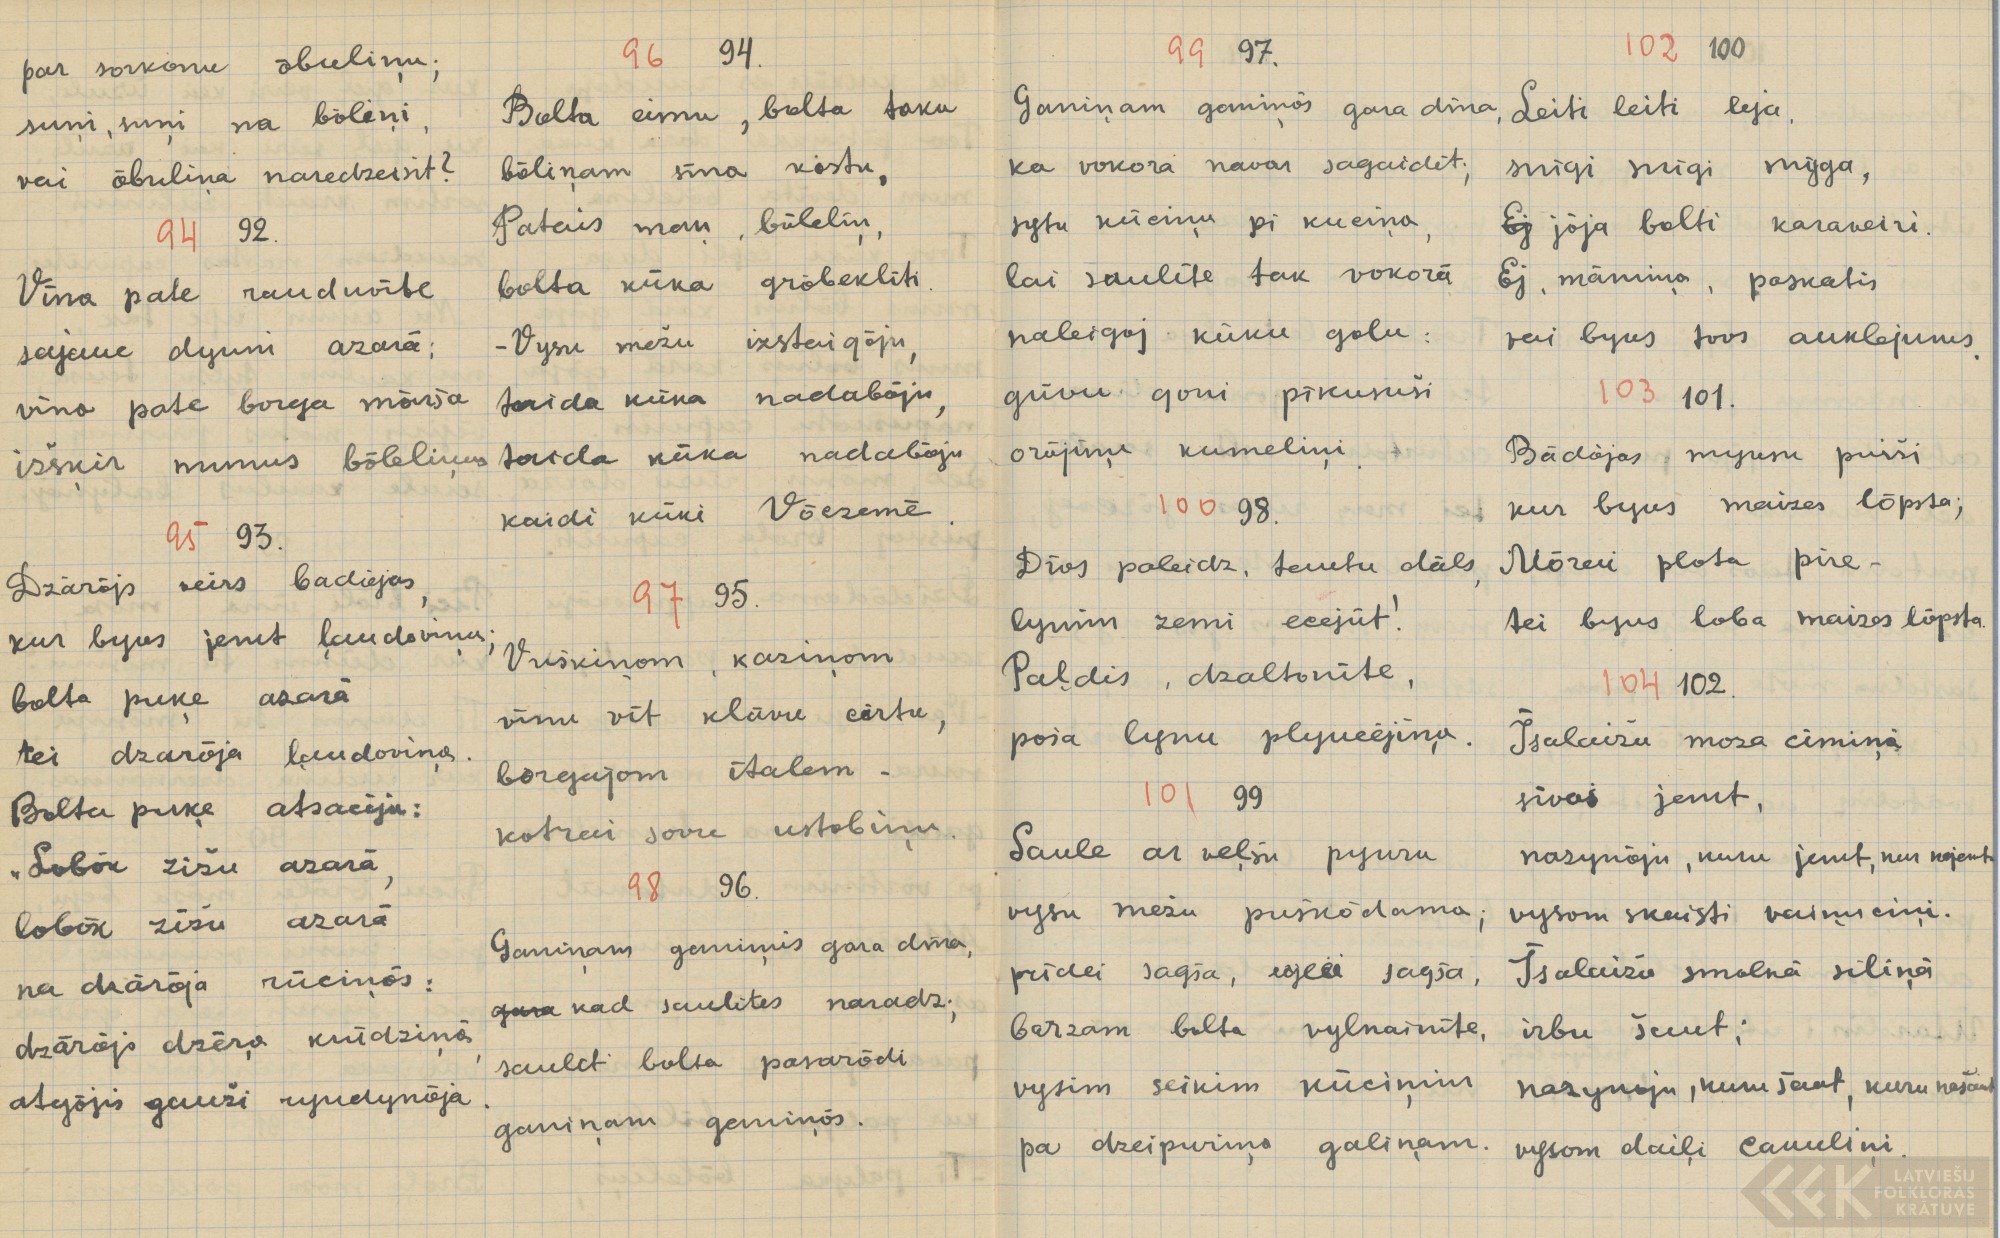 par sorkonu ōbuliņu;
suņi, suņi na bōliņi,
vai ōbuliņa naredzeisit?
94 92.
Vīna pate rauduvīte
sajauc dyuni azarā;
vīna pate borga mōrša
izšķir munus bōleliņus
95 93.
Dzārōjs veirs badiejas,
kur byus jemt ļaudoviņu;
bolta puķe azarā
tei dzarōja ļaudoviņa.
Bolta puķe atsacēja:
"Lobōk zīžu azarā,
lobōk zīžu azarā
na dzārōja rūciņōs:
dzārōjs dzēra krūdziņā,
atgōjis gauži ryudynōja.
96 94.
Bolta eimu, bolta taku
bōliņam sīna kōstu,
Patais maņ, bōleliņ,
bolta kūka grōbeklīti.
- Vysu mežu izstaigōju,
taida kūka nadabōju,
taida kūka nadabōju
kaidi kūki Vōczemē.
97 95.
Vuškiņom, kaziņom
vīnu vīt klāvu cērtu,
borgajom ītalem -
kotrai sovu ustobiņu.
98 96.
Ganiņam ganiņōs gara dīna,
gara kad saulītes naradz;
saulet bolta pasarōdi
ganiņam ganiņōs.
99 97.
Ganiņam ganiņōs gara dīna,
ka vokora navar sagaidīt;
sytu kūciņu pi kuciņa,
lai saulīte tak vokorā
naleigoj kūku golu:
gūvu goni pīkususi
orōjiņu kumeliņi.
100 98.
Dīvs paleidz, tautu dāls,
lynim zemi ecejūt!
Paļdis, dzaltonīte,
poša lynu plyucējiņa.
101 99
Saule ar veļšu pyuru
vysu mežu puškōdama;
prīdei sagša, egļei sagša,
barzam bolta vylnainīte,
vysim seikim kūciņim
pa dzeipuriņa galiņam.
102 100
Leiti leiti leja,
snigi snigi myga,
Ej jōja bolti karaveiri.
Ej, māmiņa, paskatis
vai byus tovs auklejums.
103 101.
Bādōjas myusu puiši
kur byus maizes lōpsta;
Mōrai plota pīre -
tei byus loba maizes lōpsta.
104 102.
Īsalaižu moza cīmiņā
sīvas jemt,
nazynōju, kuru jemt, kur najemt
vysom skaisti vaiņuciņi.
Īsalaižu smolnā siliņā
irbu šaut;
nazynoju, kuru šaut, kuru našaut
vysom daiļi cauuliņi.
LATVIEŠU
FOLKLORAS
KRĀTUVE